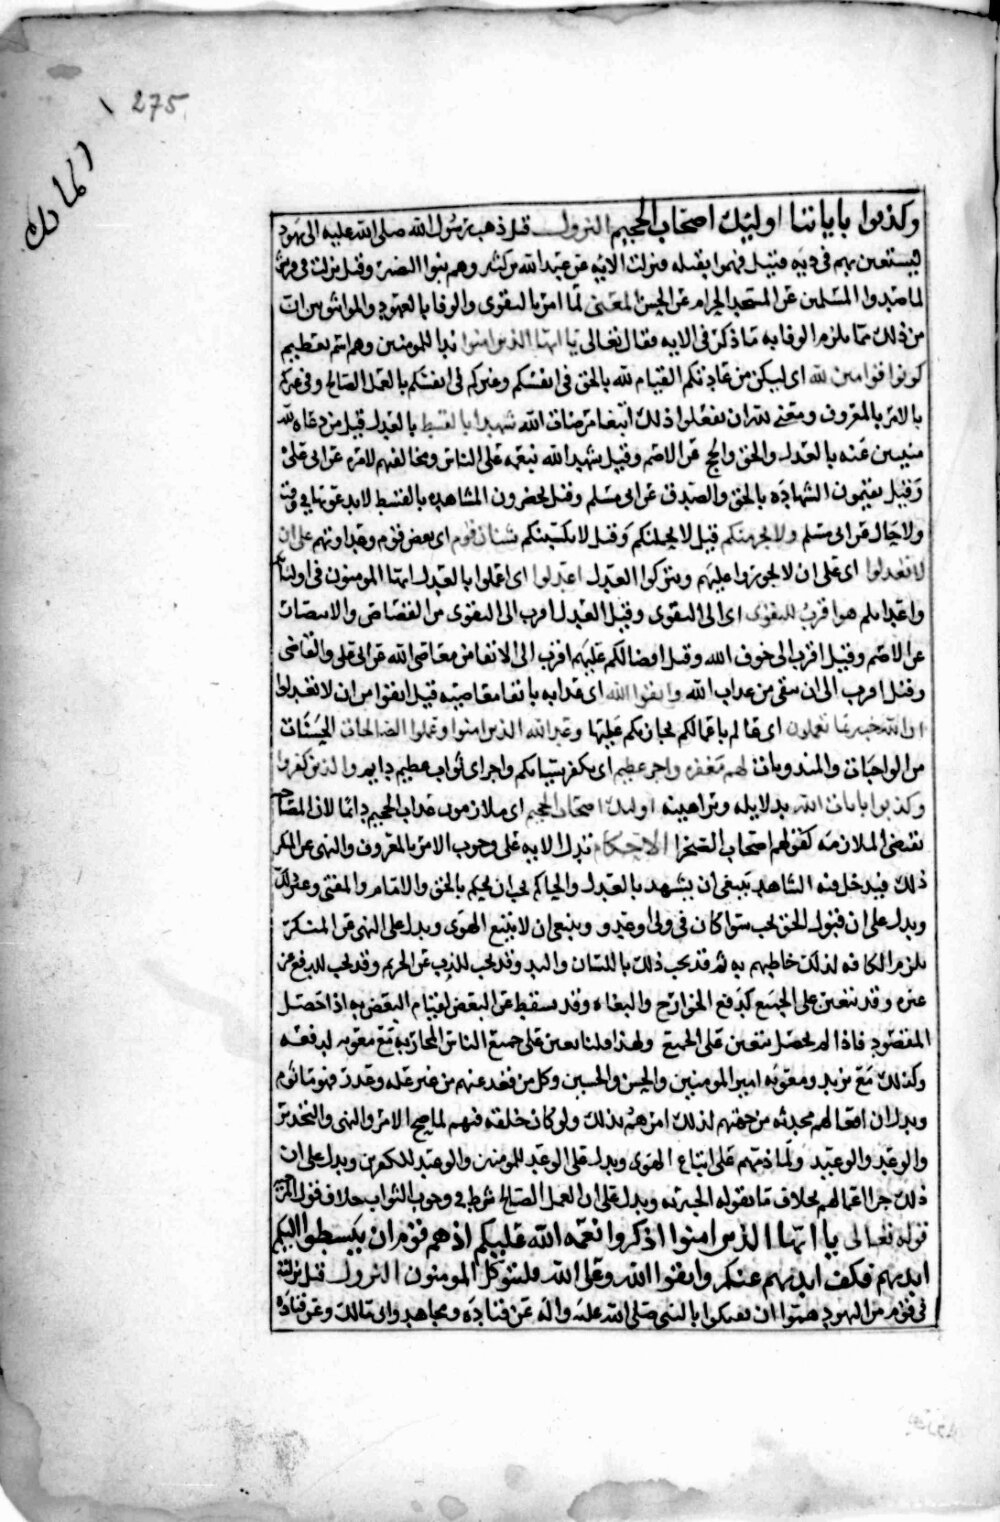 275
المائدة
وكذبوا باياتنا اوليك اصحاب الجحيم النزول قيل ذهب رسول الله صلى الله عليه الى يهود
ليستعين بهم في دية قتيل فهموا بقتله فنزلت الايه عن عبد الله بن كثير وهم بنوا النضير وقيل نزلت في قريش
لما صدوا المسلمين عن المسجد الحرام عن الحسن المعنى لما امر بالتقوى والوفا بالعهود والمواثيق بين ان
من ذلك مما يلزم الوفا به ما ذكره في الايه فقال تعالى يا ايها الذين امنوا ندا للمومنين وهم اسم تعظيم
كونوا قوامين لله اى ليكن من عادتكم القيام لله بالحق في انفسكم وغيركم في انفسكم بالعمل الصالح وفي غيركم
بالامر بالمعروف ومعنى لله ان تفعلوا ذلك ابتغا مرضات الله شهدا بالقسط بالعدل قيل من دعاه لله
مبينين عنه بالعدل والحق والحج عن الاصم وقيل شهيد الله نبيه على الناس ومخالفيهم لامره عن ابي علي
وقيل يقيمون الشهاده بالحق والصدق عن ابي مسلم وقيل يحضرون المشاهده بالقسط لا يدعونها في وقت
ولا حال عن ابي مسلم ولا يجرمنكم قيل لا يحملنكم وقيل لا يكسبنكم شنان قوم اى بعض قوم وعداوتهم على ان
لا تعدلوا اى على ان لا تجوروا عليهم وتتركوا العدل اعدلوا اى اعملوا بالعدل ايها المومنون في اوليائكم
واعدائكم هو اقرب للتقوى اى الى التقوى وقيل العدل اقرب الى التقوى من القصاص والانتصاف
عن الاصم وقيل اقرب الى خوف الله وقيل افضالكم عليهم اقرب الى الاتقا من معاصي الله عن ابي علي والقاضي
وقيل اقرب الى ان يتقى من عذاب الله واتقوا الله اى عذابه باتقا معاصيه قيل اتقوا من ان لا تعدلوا
ان الله خبير بما تعملون اى عالم باعمالكم يجازيكم عليها وعد الله الذين امنوا وعملوا الصالحات الحسنات
من الواجبات والمندوبات لهم مغفره واجر عظيم اى يكفر سياتكم واجر اى ثواب عظيم دايم والذين كفروا
وكذبوا بايات الله بدلايله وبراهينه اوليك اصحاب الجحيم اى ملازمون عذاب الجحيم دائما لان المصاحبه
تقتضي الملازمه كقولهم اصحاب الصحرا الاحكام تدل الايه على وجوب الامر بالمعروف والنهى عن المنكر
ذلك فيدخل فيه الشاهد ينبغي ان يشهد بالعدل والحاكم يجب ان يحكم بالحق والامام والمفتي وغير ذلك
ويدل على ان قبول الحق يجب سوا كان في ولى او عدو وينبغي ان لا يتبع الهوى ويدل على النهى عن المنكر
يلزم الكافه لذلك خاطبهم به ثم قد يجب ذلك باللسان واليد وقد يجب للذب عن الحريم وقد يجب للدفع عن
غيره وقد يتعين على الجميع كدفع الخوارج والبغاه وقد يسقط عن البعض لقيام البعض به اذا حصل
المقصود فاذا لم يحصل يتعين على الجميع ولهذا قلنا تعين على جميع الناس المحاربه مع معويه لدفعه
وكذلك مع يزيد ومعونه امير المومنين والحسن والحسين وكل من قعد عنهم من غير عله وعذر فهو ماثوم
ويدل ان افعالهم محدثه من جهتهم لذلك امرهم بذلك ولو كان خلقه فيهم لما صح الامر والنهى والتحذير
والوعد والوعيد ولما ذمهم على اتباع الهوى ويدل على الوعد للمومنين والوعيد للكفرين ويدل على ان
ذلك جزا اعمالهم بخلاف ما يقوله الجبريه ويدل على ان العمل الصالح شرط في وجوب الثواب خلاف قول المرجيه
قوله تعالى يا ايها الذين امنوا اذكروا نعمه الله عليكم اذ هم قوم ان يبسطوا اليكم
ايديهم فكف ايديهم عنكم واتقوا الله وعلى الله فليتوكل المومنون النزول قيل نزلت
في قوم من اليهود هموا ان يفتكوا بالنبي صلى الله عليه واله عن قتاده ومجاهد وابي مالك وعن قتاده